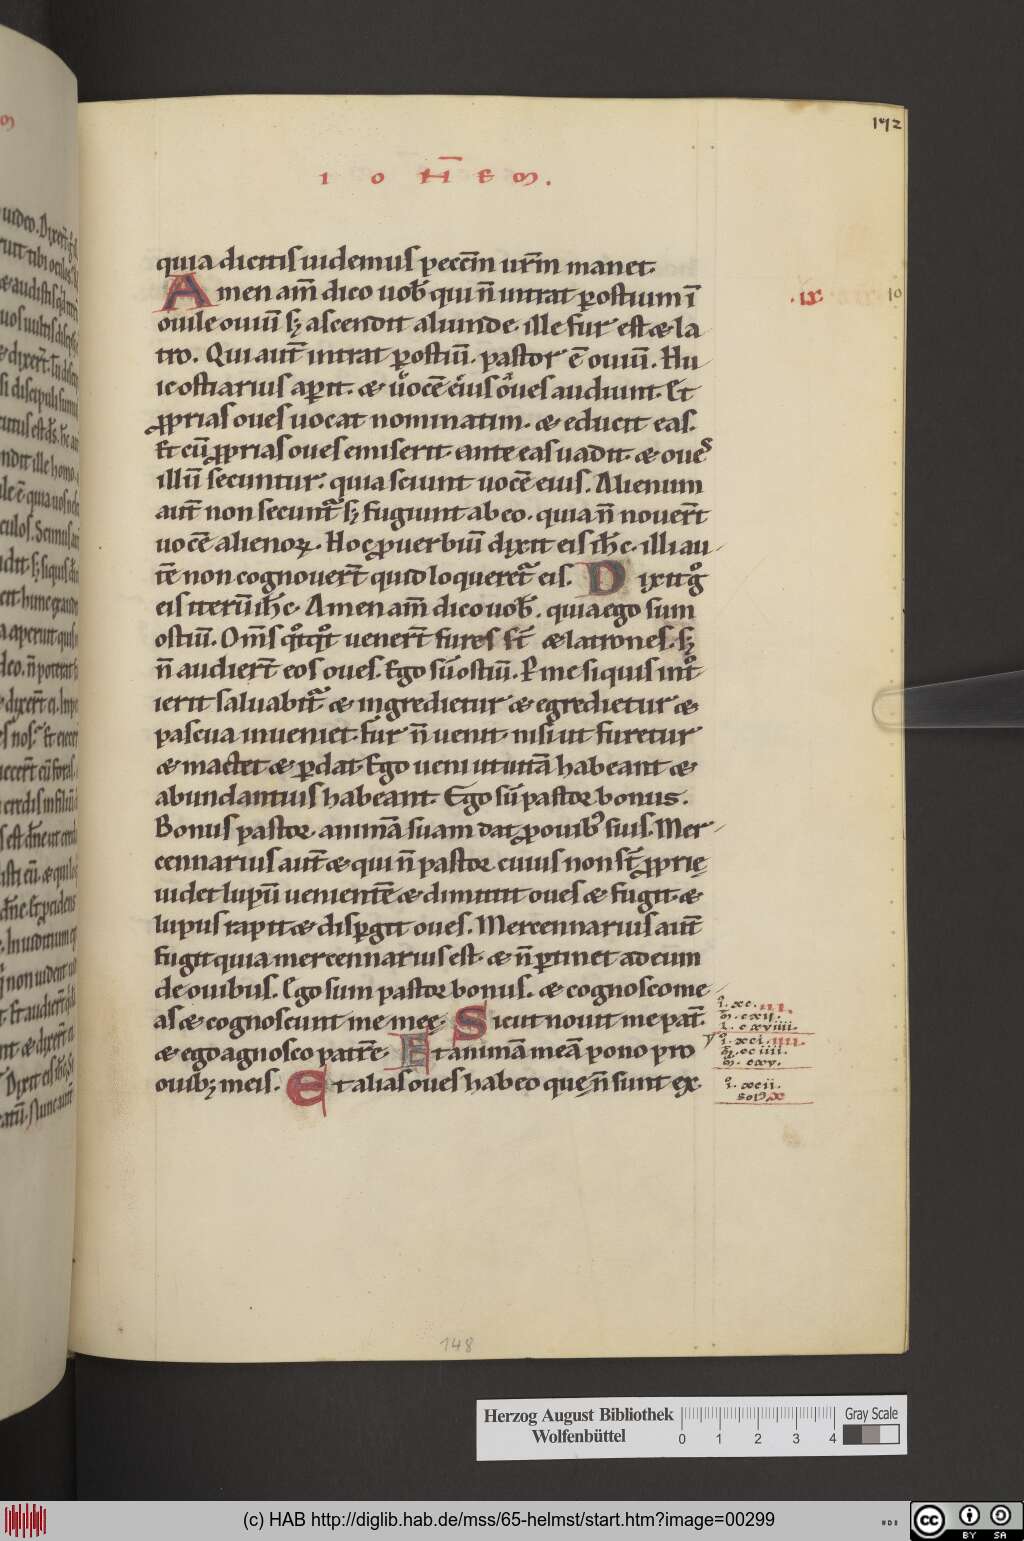 142
IOHEM.
quia dicitis uidemus peccm̅ urm̅ manet.
Amen am̅ dico uob̅ qui n̅ intrat ꝑ ostium ı̅
.ix 10
ouile ouiu̅ sꝫ ascendit aliunde. ille fur est & la
tro. Qui aut̅ intrat ꝑ ostiu̅. pastor e̅ ouiu̅. Hu
ic ostiarius aperit. & uoce̅ eius oues audiunt. Et
ꝓprias oues uocat nominatim. & educit eas.
Et cu̅ ꝓprias oues emiserit. ante eas uadit. & oues
illu̅ secuntur. quia sciunt uoce̅ eius. Alienum
aut̅ non secunt᷑ sꝫ fugiunt ab eo. quia n̅ nouert̅
uoce̅ alienoꝝ. Hoc ꝓuerbiu̅ dixit eis ih̅c. illi au
te̅ non cognouert̅ quid loqueret᷑ eis. Dixit gͦ
eis iteru̅ ih̅c. Amen am̅ dico uob̅. quia ego sum
ostiu̅. Om̅s qͦtqͦt uenert̅ fures st̅ & latrones. sꝫ
n̅ audiert̅ eos oues. Ego su̅ ostiu̅. P̲ me si quis intͦ
ierit saluabit᷑ & ingredietur & egredietur &
pascua inueniet. Fur n̅ uenit. nisi ut furetur
& mactet & ꝑdat. Ego ueni ut uita̅ habeant &
abundantius habeant. Ego su̅ pastor bonus.
Bonus pastor. anima̅ suam dat ꝓ ouibꝰ suis. Mer
cennarius aut̅ & qui n̅ pastor. cuius non st̅ ꝓprię
uidet lupu̅ ueniente̅ & dimittit oues & fugit. &
lupus rapit & disꝑgit oues. Mercennarius aut̅
fugit quia mercennarius est. & n̅ ꝑtinet ad eum
de ouibus. Ego sum pastor bonus. & cognosco me
as & cognoscunt me meę. Sicut nouit me pat̅.
& ego agnosco patre̅. Et anima̅ mea̅ pono pro
ouibꝫ meis. Et alias oues habeo quę n̅ sunt ex
i. xc. III.
m. cxij.
l. cxviiii.
i. xci. IIII.
m. cciiii.
m. cxv.
i. xcii.
sol᷑. x
148
Herzog August Bibliothek
Wolfenbüttel
0 1 2 3 4
Gray Scale
(c) HAB http://diglib.hab.de/mss/65-helmst/start.htm?image=00299
cc BY SA